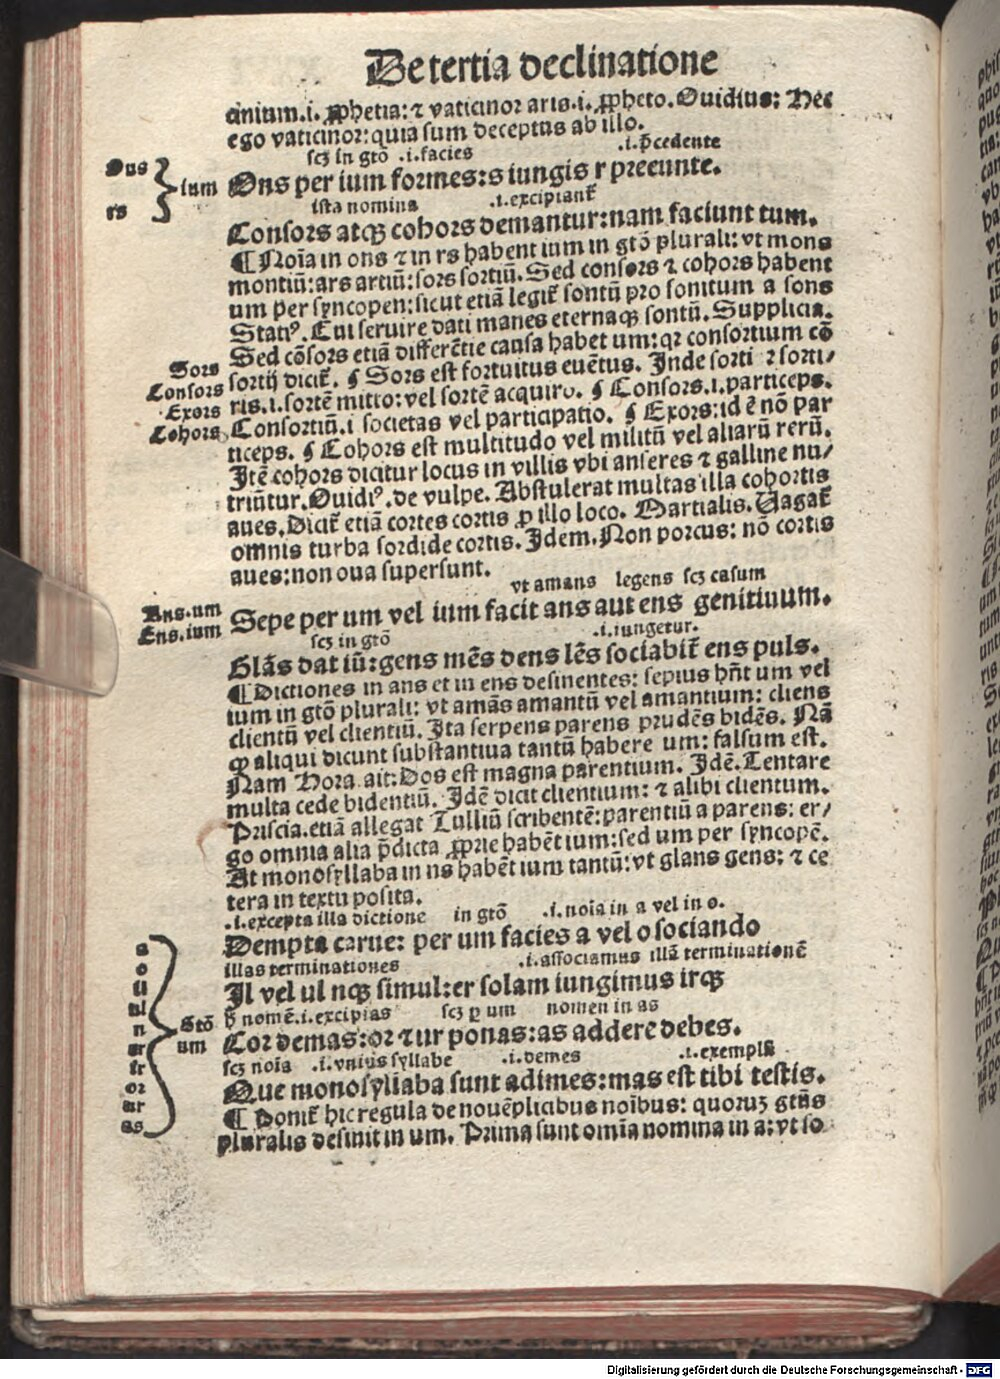 De tertia declinatione
cinium.i. ꝓphetia: ⁊ vaticinor aris.i. ꝓpheto. Ouidius: Hec
ego vaticinor: quia sum deceptus ab illo.
scꝫ in gtō .i.facies .i.p̄cedente
Ons
rs
ium
Ons per ium formes: s iungis r preeunte.
ista nomina .i.excipiant᷑
Consors atqꝫ cohors demantur: nam faciunt tum.
¶ Noīa in ons ⁊ in rs habent ium in gtō plurali: vt mons
montiū: ars artiū: sors sortiū. Sed consors ⁊ cohors habent
um per syncopen: sicut etiā legit᷑ sontū pro sonitum a sons
Statiꝰ. Cui seruire dati manes eternaqꝫ sontū. Supplicia.
Sed cōsors etiā differētie causa habet um: qꝛ consortium cō
Sors
Consors
Exors
Cohors
sortij dicit᷑. ¶ Sors est fortuitus euētus. Inde sorti ꝛ sorti/
ris.i. sortē mitto: vel sortē acquiro. ¶ Consors.i.particeps.
Consortiū.i societas vel participatio. ¶ Exors: id ē nō par
ticeps. ¶ Cohors est multitudo vel militū vel aliarū rerū.
Itē cohors dicitur locus in villis vbi anseres ⁊ galline nu/
triūtur. Ouidiꝰ. de vulpe. Abstulerat multas illa cohortis
aues. Dicit᷑ etiā cortes cortis ꝓ illo loco. Martialis. Vagat᷑
omnis turba sordide cortis. Idem. Non porcus: nō cortis
aues: non oua supersunt.
vt amans legens scꝫ casum
Ans.um
Ens.ium
Sepe per um vel ium facit ans aut ens genitiuum.
scꝫ in gtō .i.iungetur.
Glās dat iū: gens mēs dens lēs sociabit᷑ ens puls.
¶ Dictiones in ans et in ens desinentes: sepius hn̄t um vel
ium in gtō plurali: vt amās amantū vel amantium: cliens
clientū vel clientiū. Ita serpens parens prudēs bidēs. Nā
ꝙ aliqui dicunt substantiua tantū habere um: falsum est.
Nam Hora. ait: Dos est magna parentium. Idē. Tentare
multa cede bidentiū. Idē dicit clientium: ⁊ alibi clientum.
Priscia. etiā allegat Tulliū scribentē: parentiū a parens: er/
go omnia alia p̄dicta ꝓprie habēt ium: sed um per syncopē.
At monosyllaba in ns habēt ium tantū: vt glans gens: ⁊ ce
tera in textu posita.
.i.excepta illa dictione in gtō .i.noīa in a vel in o.
Dempta carne: per um facies a vel o sociando
illas terminationes .i.associamus illā terminationē
Il vel ul nqꝫ simul: er solam iungimus irqꝫ
a
o
il
ul
n
er
ir
or
ur
as
Gtō
um
nomē.i.excipias scꝫ ꝑ um nomen in as
Cor demas: or ⁊ ur ponas: as addere debes.
scꝫ noīa .i.vnius syllabe .i.demes .i.exemplū
Que monosyllaba sunt adimes: mas est tibi testis.
¶ Ponit᷑ hic regula de nouēplicibus noībus: quoruꝫ gtūs
pluralis desinit in um. Prima sunt omīa nomina in a: vt so
Digitalisierung gefördert durch die Deutsche Forschungsgemeinschaft - DFG